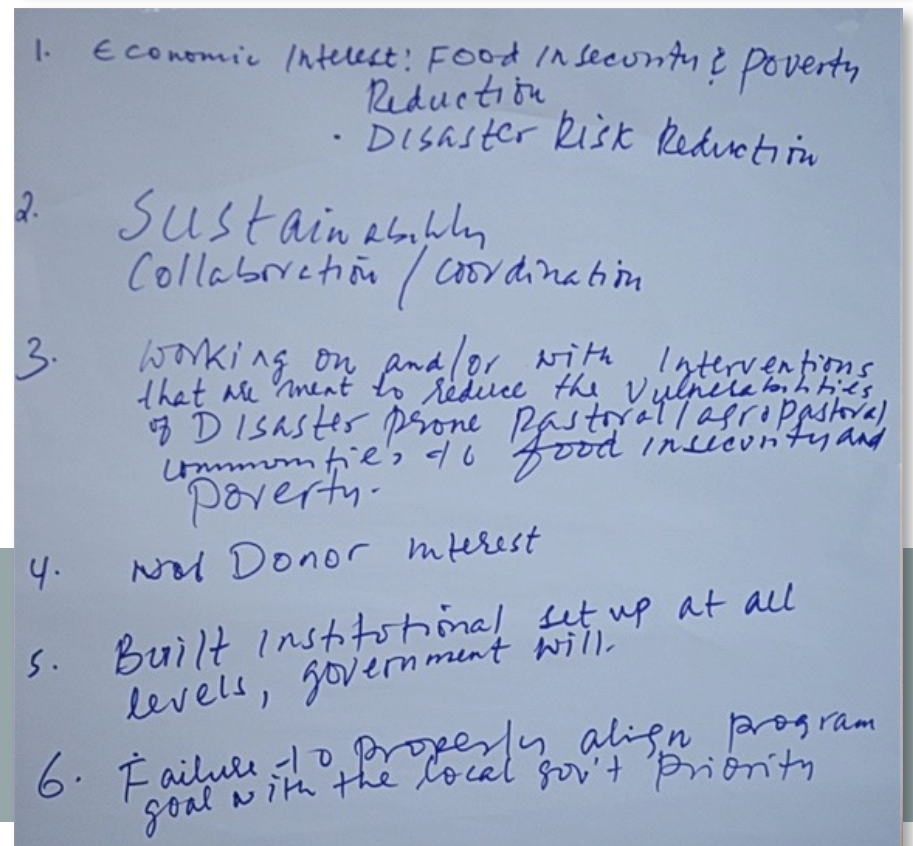 1. Economic Interest: Food Insecurity & poverty
Reduction
· Disaster Risk Reduction
2. Sustainability
Collaboration / coordination
3. Working on and/or with Interventions
that are ment to reduce the vulnerabilities
of Disaster prone pastoral/agropastoral
communities to food insecurity and
poverty.
4. Not Donor interest
5. Built institutional set up at all
levels, government will.
6. Failure to properly align program
goal with the local gov't priority